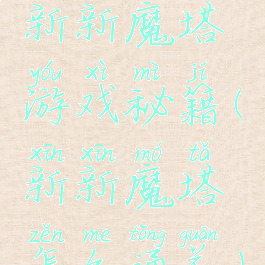 新新魔塔
yóu xì mì jí
游戏秘籍(
xīn xīn mó tǎ
新新魔塔
zěn me tōng guān
怎么通关)